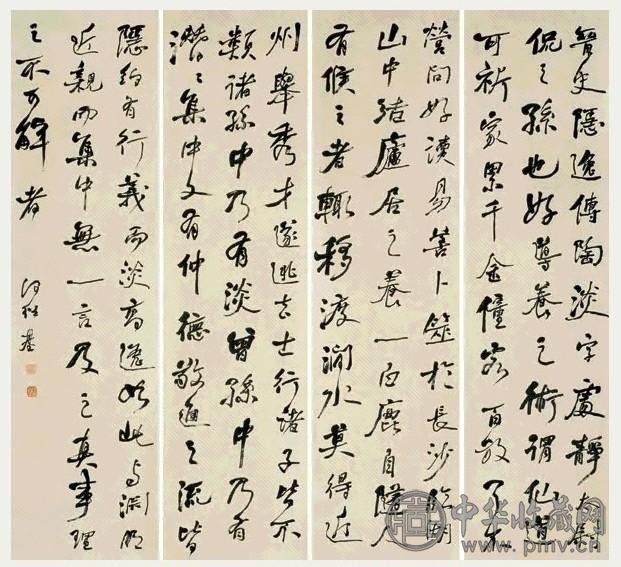 晉史隱逸傳陶淡字處靜太尉
侃之孫也好導養之術謂仙道
可祈家累千金僮客百數了不
營問好讀易善卜筮於長沙臨湘
山中結廬居之養一白鹿自隨人
有候之者輒移渡澗水莫得近
州舉秀才遂逃去士行諸子皆不
類諸孫中乃有淡曾孫中乃有
潛潛集中又有仲德敬通之流皆
隱約有行義而淡高邁如此與淵明
近親而集中無一言及之真事理
之不可解者
何紹基
中华收藏网
www.pmv.cn